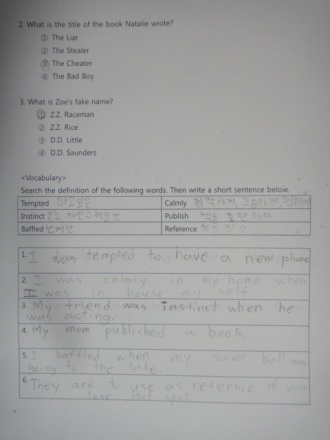 2. What is the title of the book Natalie wrote?
① The Liar
② The Stealer
③ The Cheater
④ The Bad Boy
3. What is Zoe's fake name?
① Z.Z. Raceman
② Z.Z. Rice
③ D.D. Little
④ D.D. Saunders
<Vocabulary>
Search the definition of the following words. Then write a short sentence below.
Tempted Calmly
Instinct Publish
Baffled Reference
1. I was tempted to have a new phone
2. I was calmly in my home when
I was in house
3. My friend was instinct when he
was acting.
4. My mom published a book.
5. I baffled when my soccer ball was
going to the lake.
6. They are to use as refernce if you
lose that spot